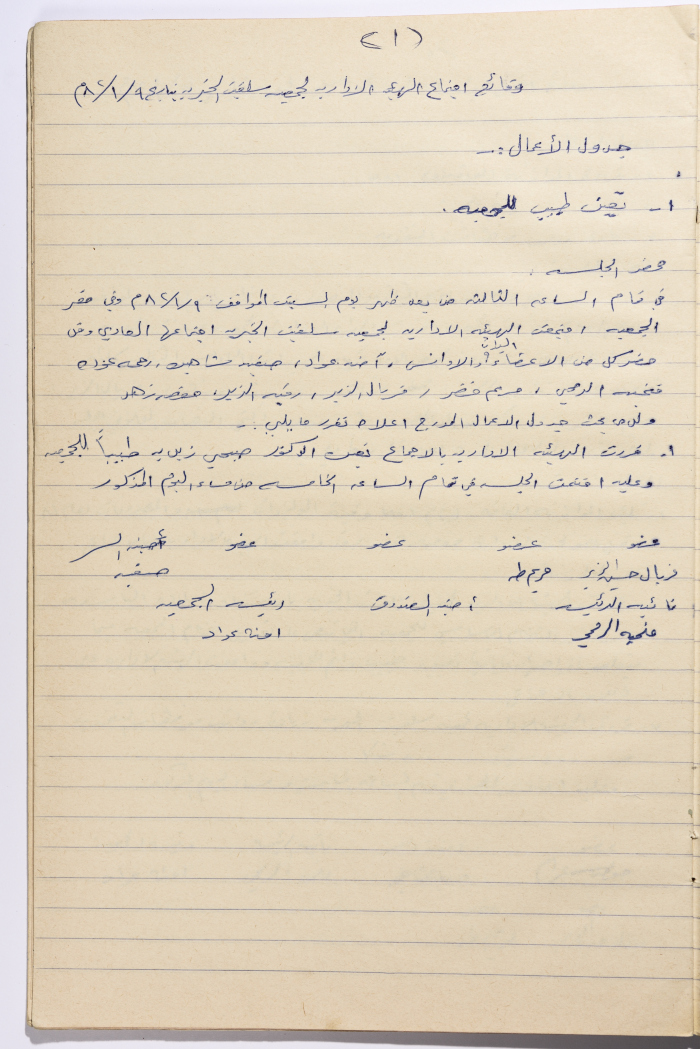 (١)
وقائع اجتماع الهيئة الادارية لجمعية سلفيت الخيرية بتاريخ ٨٢/١/٩م
جدول الأعمال :ـ
١ـ تعين طبيب للجمعيه .
محضر الجلسه :
في تمام الساعه الثالثه من بعد ظهر يوم السبت الموافق ٨٢/١/٩م وفي مقر
الجمعيه اجتمعت الهيئه الاداريه لجمعيه سلفيت الخيريه اجتماعها العادي وقد
حضر كل من الاعضاء والاوانس ، آمنه عواد ، صفيه شاهين ، رحمه عوده
السيدات
فتحيه الرمحي ، مريم خضر ، فريال الزير ، رقيه الزير ،
ولدى بحث جدول الاعمال المدرج اعلاه تقرر ما يلي :ـ
١ـ قررت الهيئه الاداريه بالاجماع تعين الدكتور صبحي طبيباً للجمعيه
وعليه اختتمت الجلسه في تمام الساعه الخامسه من مساء اليوم المذكور
عضو عضو عضو عضو أمينه السر
فريال حسين الزير مريم طه صفيه
نائبه الرئيسه أمينه الصندوق رئيسه الجمعيه
فتحيه الرمحي امنه عواد